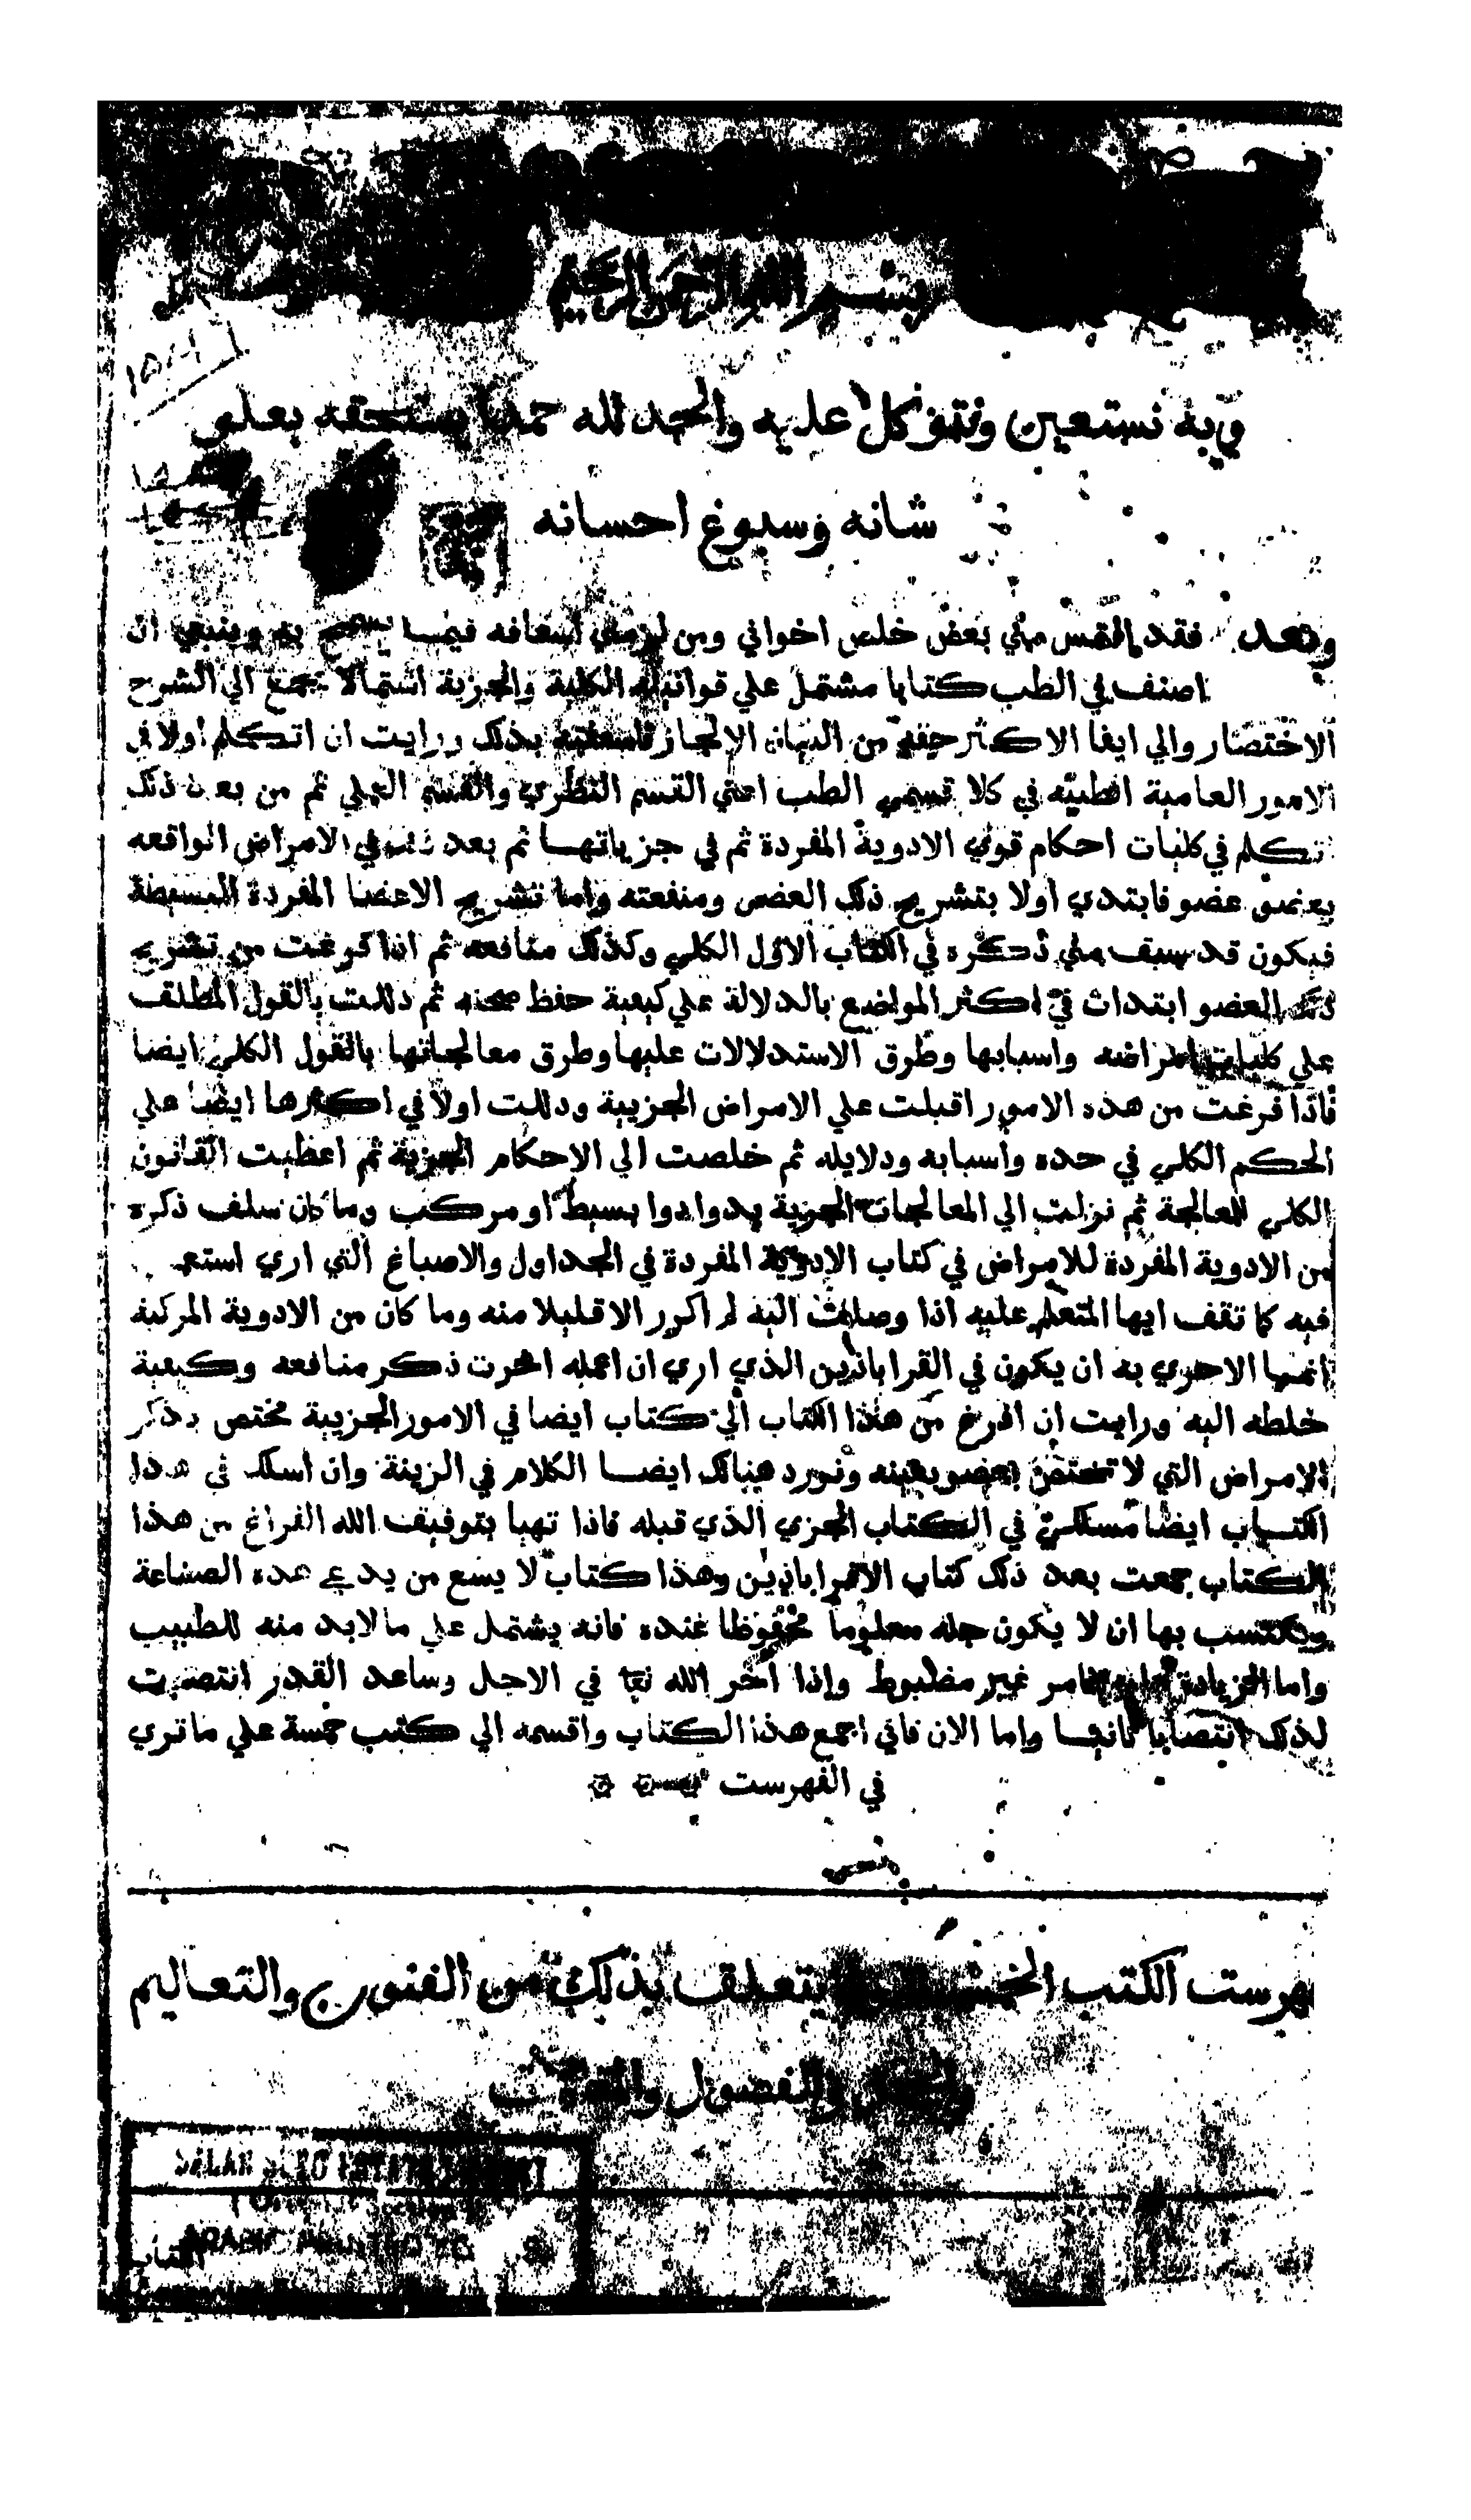 بسم الله الرحمن الرحيم
وبه نستعين ونتوكل عليه والحمد لله حمدا يستحقه بعلو
شانه وسبوغ احسانه
وبعد فقد التمس مني بعض خلص اخواني ومن لزمني اسعافه فيما يسمح به وينبغي ان
اصنف في الطب كتابا مشتمل علي قوانينه الكلية والجزية اشتمالا يجمع الي الشرح
الاختصار والي ايفا الاكثر حقه من البيان الايجاز بذلك ورايت ان اتكلم اولا في
الامور العامية الطبيه في كلا قسمي الطب اعني القسم النظري والقسم العملي ثم من بعد ذلك
نتكلم في كليات احكام قوي الادوية المفردة ثم في جزياتها ثم بعد ذلك في الامراض الواقعه
بعضو عضو فابتدي اولا بتشريح ذلك العضو ومنفعته واما تشريح الاعضا المفردة البسيطة
فيكون قد سبق مني ذكره في الكتاب الاول الكلي وكذلك منافعه ثم اذا فرغت من تشريح
ذلك العضو ابتدات في اكثر المواضع بالدلالة علي كيفية حفظ صحته ثم دللت بالقول المطلق
علي كليات امراضه واسبابها وطرق الاستدلالات عليها وطرق معالجاتها بالقول الكلي ايضا
فاذا فرغت من هذه الامور اقبلت علي الامراض الجزيية ودللت اولا في اكثرها ايضا علي
الحكم الكلي في حده واسبابه ودلايله ثم خلصت الي الاحكام الجزية ثم اعطيت القانون
الكلي للمعالجة ثم نزلت الي المعالجات الجزية بدوا دوا بسيط او مركب وما كان سلف ذكره
من الادوية المفردة للامراض في كتاب الادوية المفردة في الجداول والاصباغ التي اري استعـ
فيه كما تقف ايها المتعلم عليه اذا وصلت اليه لم اكرر الا قليلا منه وما كان من الادوية المركبة
انما الاحري به ان يكون في القراباذين الذي اري ان اعمله اخرت ذكر منافعه وكيفية
خلطه اليه ورايت ان افرغ من هذا الكتاب الي كتاب ايضا في الامور الجزيية مختص بذكر
الامراض التي لا تختص بعضو بعينه ونورد هنالك ايضا الكلام في الزينة وان اسلك في هذا
الكتاب ايضا مسلكي في الكتاب الجزي الذي قبله فاذا تهيا بتوفيق الله الفراغ من هذا
الكتاب جمعت بعد ذلك كتاب الاقراباذين وهذا كتاب لا يسع من يدعي هذه الصناعة
ويكتسب بها ان لا يكون جله معلوما محفوظا عنده فانه يشتمل علي ما لابد منه للطبيب
واما الزيادة عليه فامر غير مضبوط واذا اخر الله تعا في الاجل وساعد القدر انتصبت
لذلك انتصابا ثانيا واما الان فاني اجمع هذا الكتاب واقسمه الي كتب خمسة علي ما تري
في الفهرست
فهرست الكتب الخمسة يتعلق بذلك من الفنون والتعاليم
والجمل والفصول والمقالات